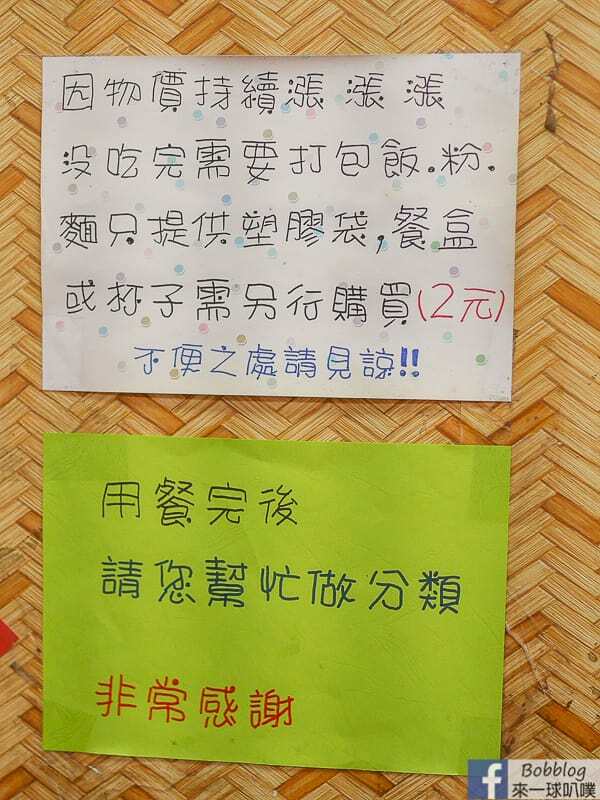 因物價持續漲 漲 漲
没吃完需要打包飯.粉.
麵只提供塑膠袋,餐盒
或杯子需另行購買(2元)
不便之處請見諒!!
用餐完後
請您幫忙做分類
非常感謝
Bobblog
來一球叭噗